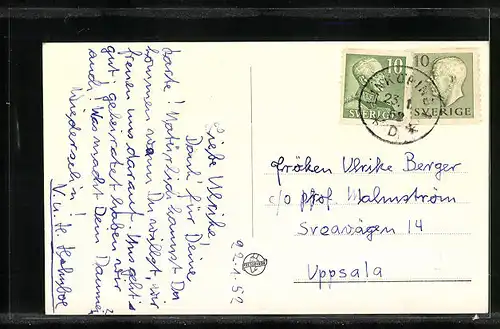 22.1.52
Liebe Ulrike!
Dank' für Deine
Karte! Natürlich kannst Du
kommen wann Du willst, wir
freuen uns darauf. Uns geht's
gut, geheiratet haben wir
auch! Was macht Dein Daumen?
Wiedersehn!
V. u. H.
10
SVERIGE
10
SVERIGE
LINKÖPING
D
Fröken Ulrike Berger
c/o prof. Malmström
Sveavägen 14
Uppsala